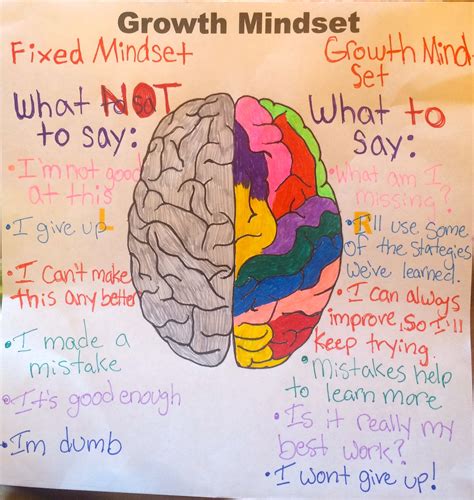 Growth Mindset
Fixed Mindset
What NOT
to say:
• I'm not good
at this
• I give up
• I can't make
this any better
• I made a
mistake
• It's good enough
• Im dumb
L
Growth Mind
Set
What to
say:
• What am I
missing?
• I'll use some
of the strategies
we've learned.
• I can always
improve, so I'll
keep trying.
• Mistakes help
to learn more
• Is it really my
best work?
• I wont give up!
R